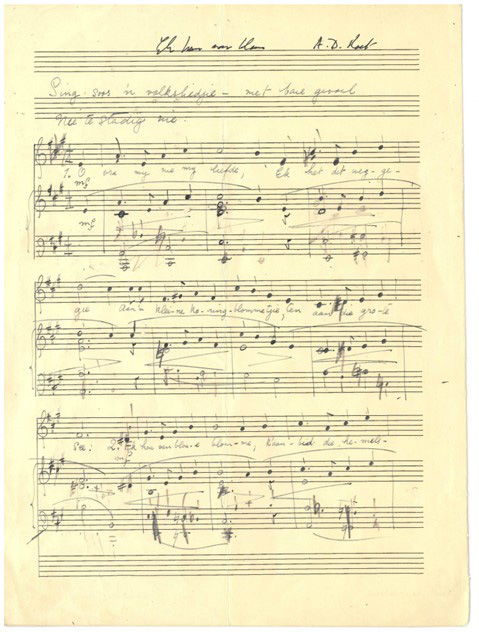 Ek hou van blou A. D. Keet
Sing soos 'n volksliedjie – met baie gevoel
Nie te stadig nie.
1. O vra my nie my liefde, Ek het dit weg-ge-
mf
mf
gee Aan 'n klei-ne ko-ring-blommetjie, En aan die gro-te
See: 2. Ek hou van blou-e blom-me, 'K aan-bid die he-mels-
mf